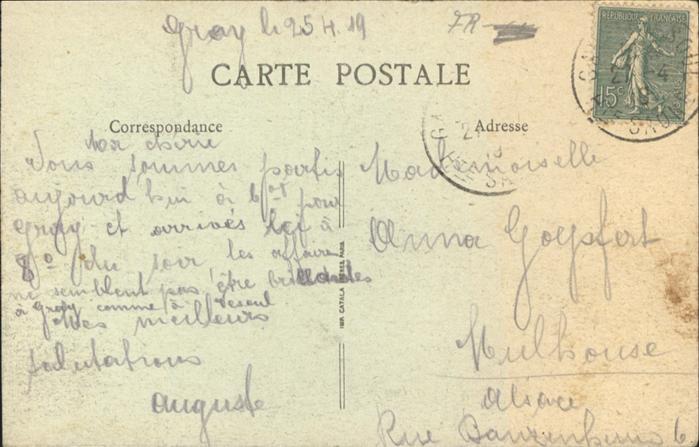 Gray le 25 4. 19
FR
RÉPUBLIQUE FRANÇAISE
15c
CARTE POSTALE
Correspondance
Adresse
Ma chère
Nous sommes partis
aujourd'hui à 6 pour
Gray et arrivés ici à
8 du soir les affaires
ne semblent pas être brillantes
à Gray comme à Vesoul
Mes meilleurs
salutations
auguste
Mademoiselle
Anna
Mulhouse
alsace
Rue
IMP. CATALA FRÈRES PARIS